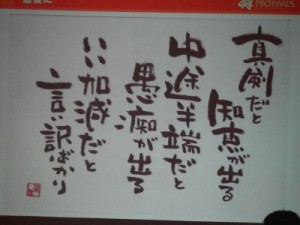 PROTIMES
真剣だと
知恵が出る
中途半端だと
愚痴が出る
いい加減だと
言い訳ばかり